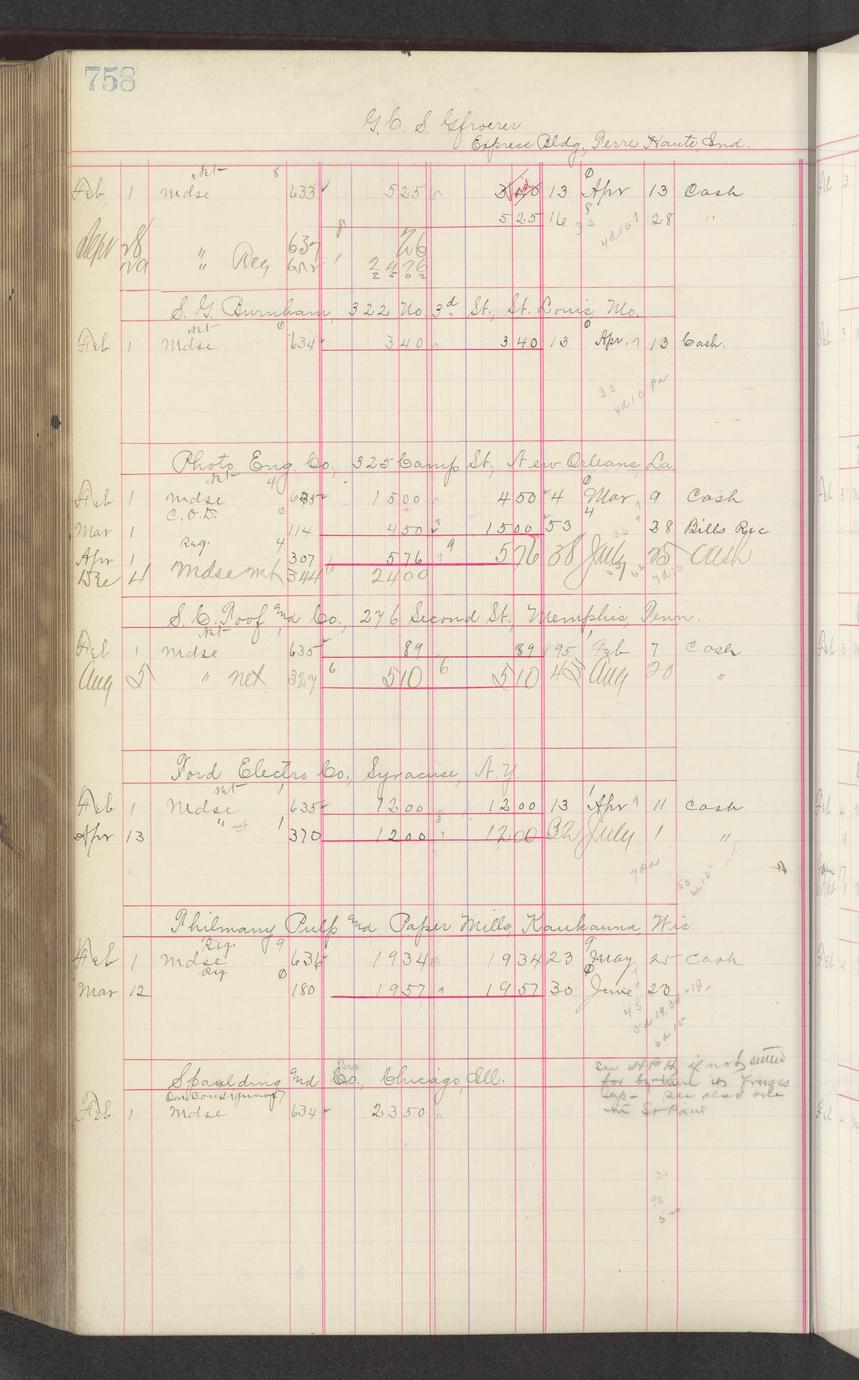 758
G. C. S. Gfroerer
Express Bldg, Terre Haute, Ind.
Net 8
Feb 1 Mdse 633 525 340 13 Apr 13 Cash
525 16 28 "
Sept 28 637 26
29 " Reg 2476
2502
S. G. Burnham, 322 No. 3d St., St. Louis, Mo.
net 0
Feb 1 Mdse 634 340 340 13 Apr. 13 Cash.
Photo Eng. Co., 325 Camp St., New Orleans, La
Net 4
Feb 1 Mdse 635 1500 450 4 Mar 9 Cash
C.O.D. 0
Mar 1 114 450 1500 53 38 Bills Rec
Reg. 4
Apr 1 307 576 576 38 July 25 Cash
Dec 4 Mdse net 344 2400
S. C. Toof and Co., 276 Second St., Memphis, Tenn.
Net 1
Feb 1 Mdse 635 89 89 95 Feb 7 Cash
Aug 5 " net 327 510 510 45 Aug 20 "
Ford Electro Co., Syracuse, N.Y.
net 1
Feb 1 Mdse 635 1200 1200 13 Apr 11 Cash
Apr 13 " net 1 370 1200 1200 32 July 1 "
Thilmany Pulp and Paper Mills, Kaukauna, Wis.
Reg. 9
Feb 1 Mdse 636 1934 1934 23 May 25 Cash
Reg 0
Mar 12 180 1957 1957 30 June 23 "
Spaulding and Co., Chicago, Ill.
On Consignment
Feb 1 Mdse 634 2350
if not entered
for
see also one
St Paul